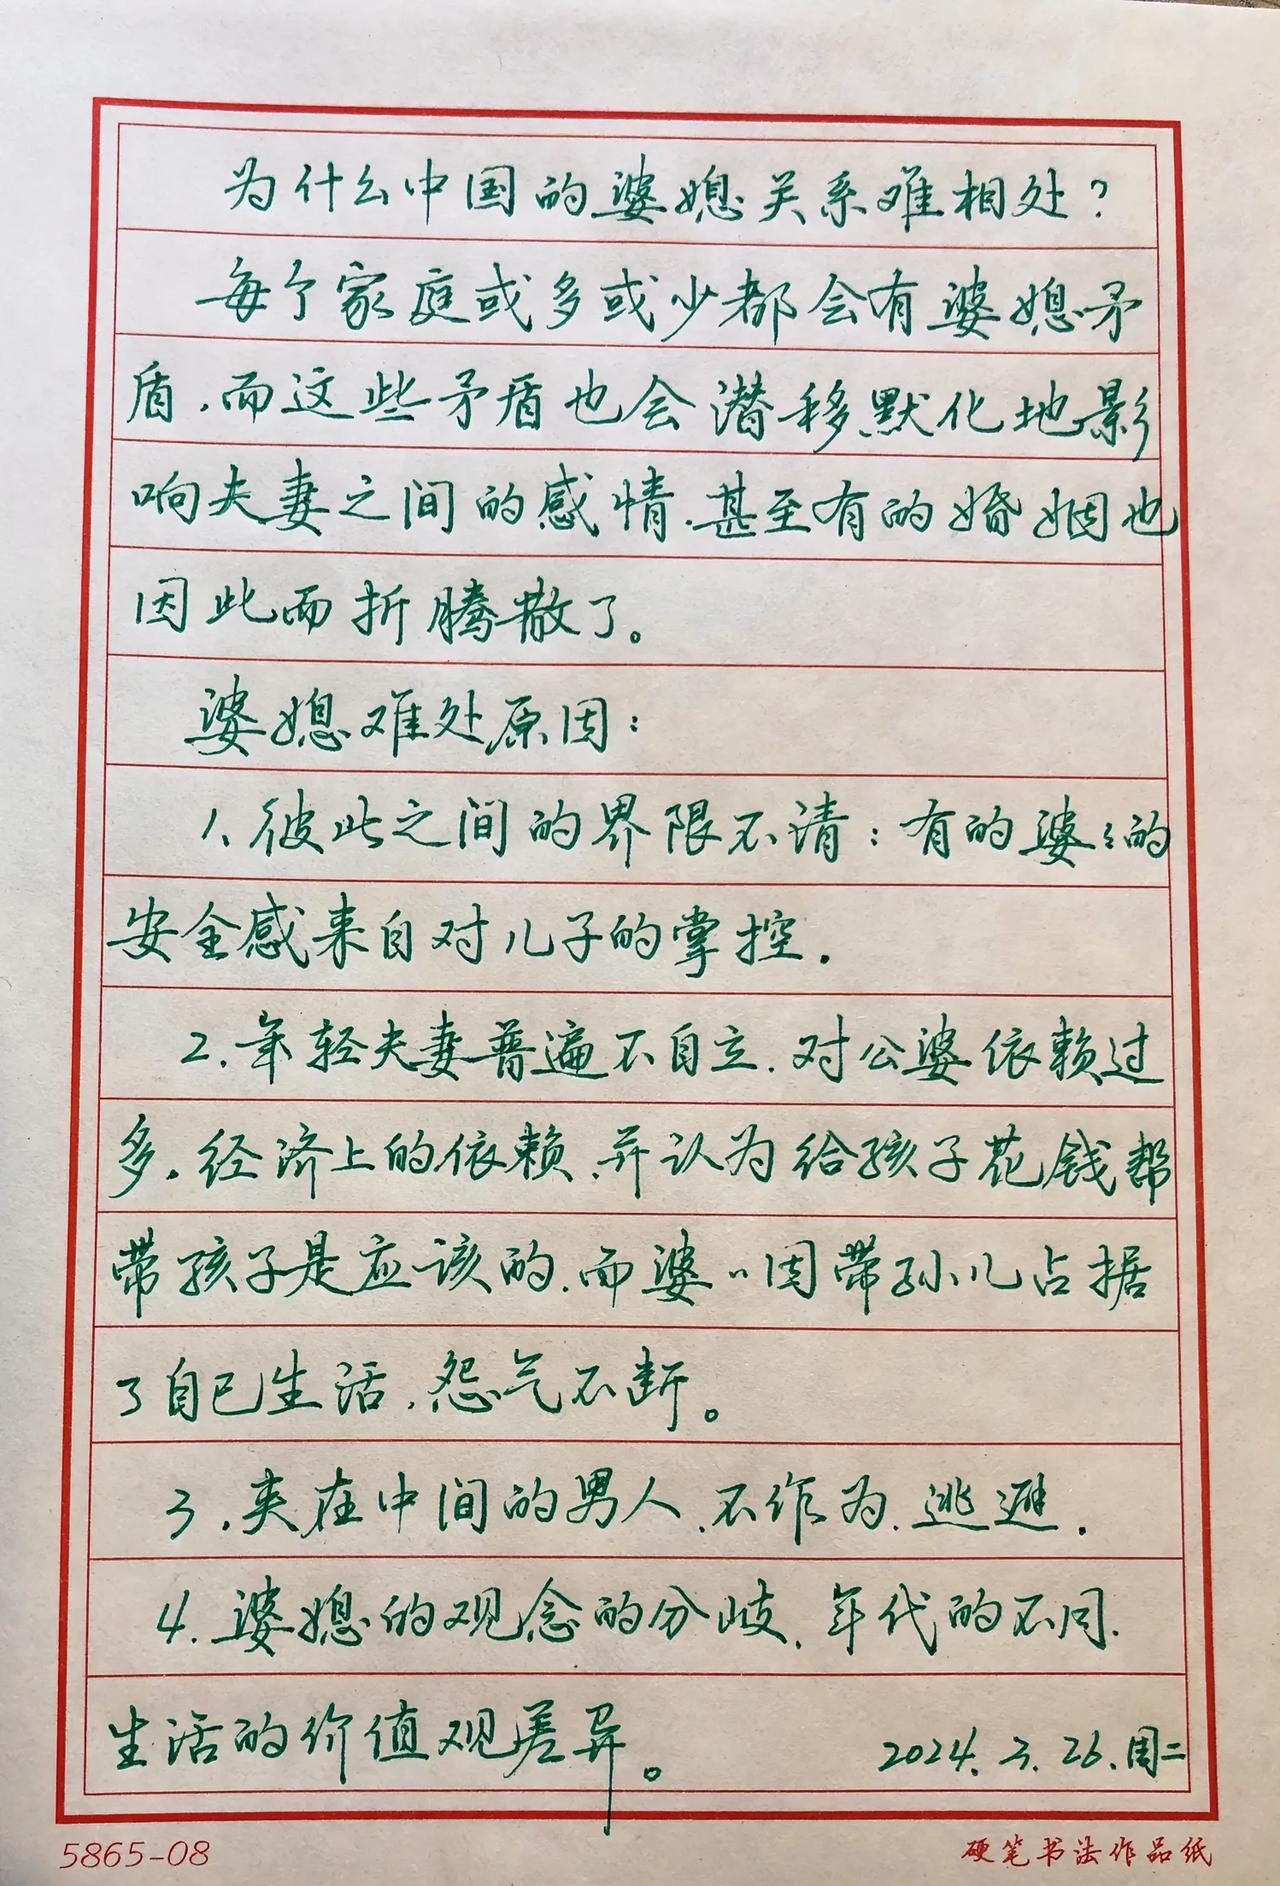 为什么中国的婆媳关系难相处?
每个家庭或多或少都会有婆媳矛
盾.而这些矛盾也会潜移默化地影
响夫妻之间的感情.甚至有的婚姻也
因此而折腾散了。
婆媳难处原因:
1、彼此之间的界限不清:有的婆々的
安全感来自对儿子的掌控.
2.年轻夫妻普遍不自立.对公婆依赖过
多.经济上的依赖.并认为给孩子花钱帮
带孩子是应该的.而婆〃因带孙儿占据
了自已生活.怨气不断。
3.夹在中间的男人.不作为.逃避.
4.婆媳的观念的分歧.年代的不同.
生活的价值观差异。
2024.3.26.周二
5865-08
硬笔书法作品纸